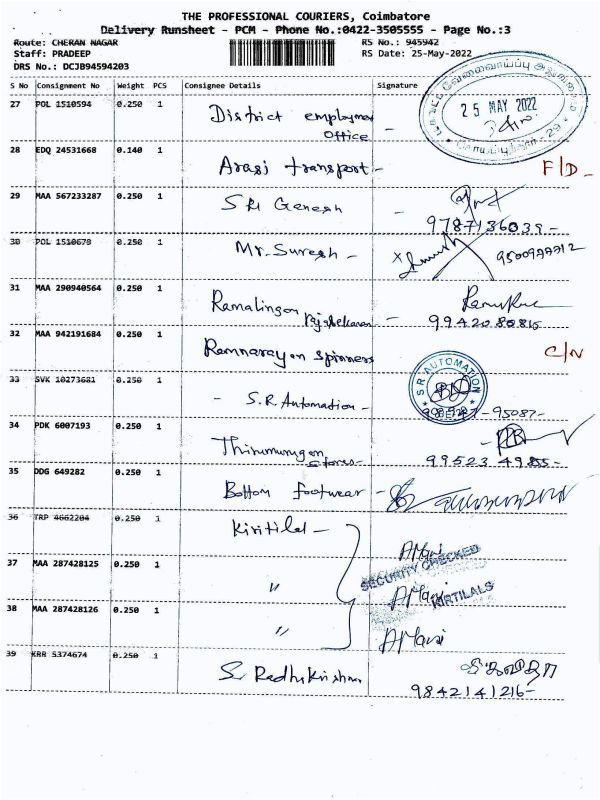 THE PROFESSIONAL COURIERS, Coimbatore
Delivery Runsheet - PCM - Phone No.:0422-3505555 - Page No.:3
Route: CHERAN NAGAR RS No.: 945942
Staff: PRADEEP RS Date: 25-May-2022
DRS No.: DCJB94594203
S No Consignment No Weight PCS Consignee Details Signature
25 MAY 2022
27 POL 1510594 0.250 1 District employment
Office -
28 EDQ 24531668 0.140 1 Arasi transport - F/D -
29 MAA 567233287 0.250 1 SRI Ganesh -
9787136039 -
30 POL 1510679 0.250 1 Mr. Suresh -
31 MAA 290940564 0.250 1 Ramalingam
Rajasekaran - 9942080815
32 MAA 942191684 0.250 1 Ramnarayan spinners C/N
33 SVK 10273681 0.250 1 - S.R. Automation - S.R. AUTOMATION
95087 -
34 PDK 6007193 0.250 1 Thirumurugan
stores -
35 DDG 649282 0.250 1 Bottom footwear -
36 TRP 4662204 0.250 1 Kiritilal - AMani
SECURITY CHECKED
37 MAA 287428125 0.250 1 " AMani KIRTILALS
38 MAA 287428126 0.250 1 " AMani
39 KRR 5374674 0.250 1 S. Radhikrishna
9842141216 -